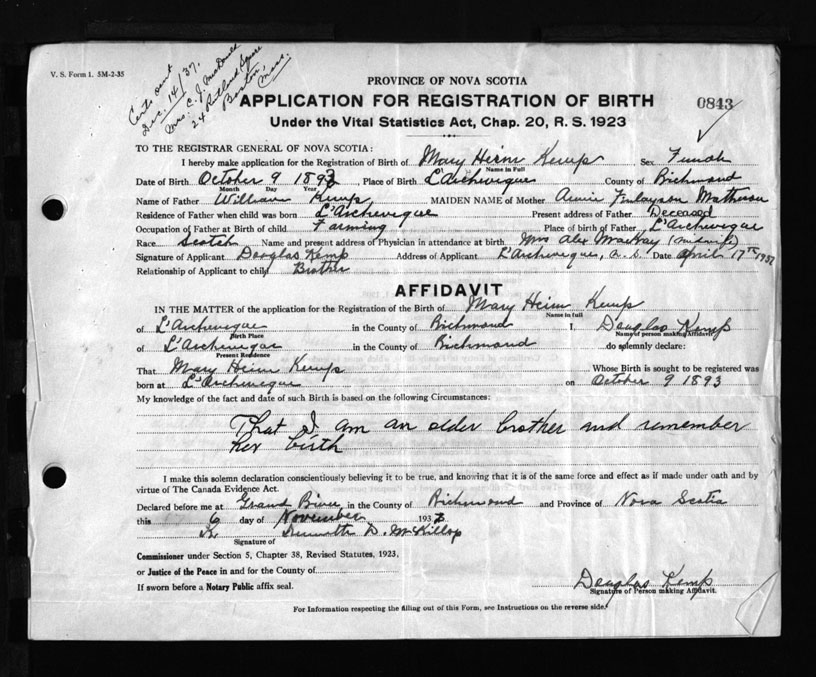 V. S. Form 1. 5M-2-35
Certs sent
Dec. 14/37.
Mrs. C. J. McDonald
24 Rutland Square
Boston, Mass.
PROVINCE OF NOVA SCOTIA
APPLICATION FOR REGISTRATION OF BIRTH
0843
Under the Vital Statistics Act, Chap. 20, R. S. 1923
TO THE REGISTRAR GENERAL OF NOVA SCOTIA:
I hereby make application for the Registration of Birth of Mary Heim Kemp Sex Female
Name in Full
Date of Birth October 9 1893, Place of Birth L'Archeveque County of Richmond
Month Day Year
Name of Father William Kemp, MAIDEN NAME of Mother Annie Finlayson Matheson
Residence of Father when child was born L'Archeveque Present address of Father Deceased
Occupation of Father at Birth of child Farming Place of birth of Father L'Archeveque
Race Scotch Name and present address of Physician in attendance at birth Mrs Alex MacKay (Midwife)
Signature of Applicant Douglas Kemp Address of Applicant L'Archeveque, N. S. Date April 17th 1937
Relationship of Applicant to child Brother
AFFIDAVIT
IN THE MATTER of the application for the Registration of the Birth of Mary Heim Kemp
Name in full
of L'Archeveque in the County of Richmond I, Douglas Kemp
Birth Place Name of person making Affidavit
of L'Archeveque in the County of Richmond do solemnly declare:
Present Residence
That Mary Heim Kemp Whose Birth is sought to be registered was
born at L'Archeveque on October 9 1893
My knowledge of the fact and date of such Birth is based on the following Circumstances:
That I am an older brother and remember
her birth
I make this solemn declaration conscientiously believing it to be true, and knowing that it is of the same force and effect as if made under oath and by
virtue of The Canada Evidence Act.
Declared before me at Grand River in the County of Richmond and Province of Nova Scotia
this 6 day of November 1937
D. McKillop
Signature of
Commissioner under Section 5, Chapter 38, Revised Statutes, 1923,
or Justice of the Peace in and for the County of
If sworn before a Notary Public affix seal.
Douglas Kemp
Signature of Person making Affidavit.
For Information respecting the filling out of this Form, see Instructions on the reverse side.